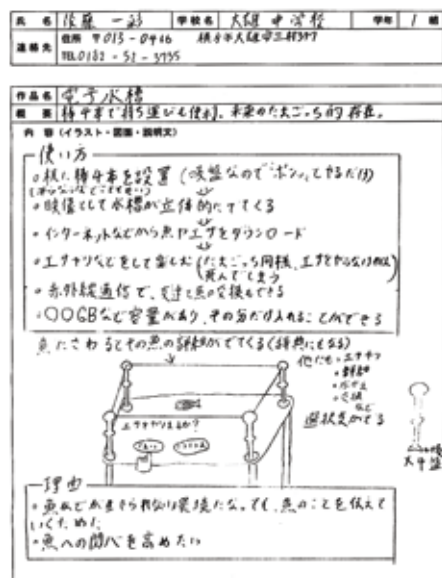 氏名 佐藤 一彩 学校名 大雄中学校 学年 1
連絡先 住所 〒013-0446 横手市大雄字三村397
TEL 0182-52-3935
作品名 電子水槽
概要 棒4本で持ち運びも便利。未来のたまごっち的存在。
内容（イラスト・図面・説明文）
使い方
・机に棒4本を設置（吸盤なのでポンッとやるだけ）
・映像として水槽が立体的にでてくる
・インターネットなどから魚やエサをダウンロード
・エサやりなどをして楽しむ（たまごっち同様、エサをやらなければ死んでしまう
・赤外線通信で、友達と魚の交換もできる
・○○GBなど容量があり、その分だけ入れることができる
魚にさわるとその魚の詳細がでてくる（辞典にもなる）
他にも・エサやり
など
選択肢がでる
エサをやりますか？
吸盤
理由
・魚などが生きられない環境になっても、魚のことを伝えて
いくために
・魚への関心を高めたい